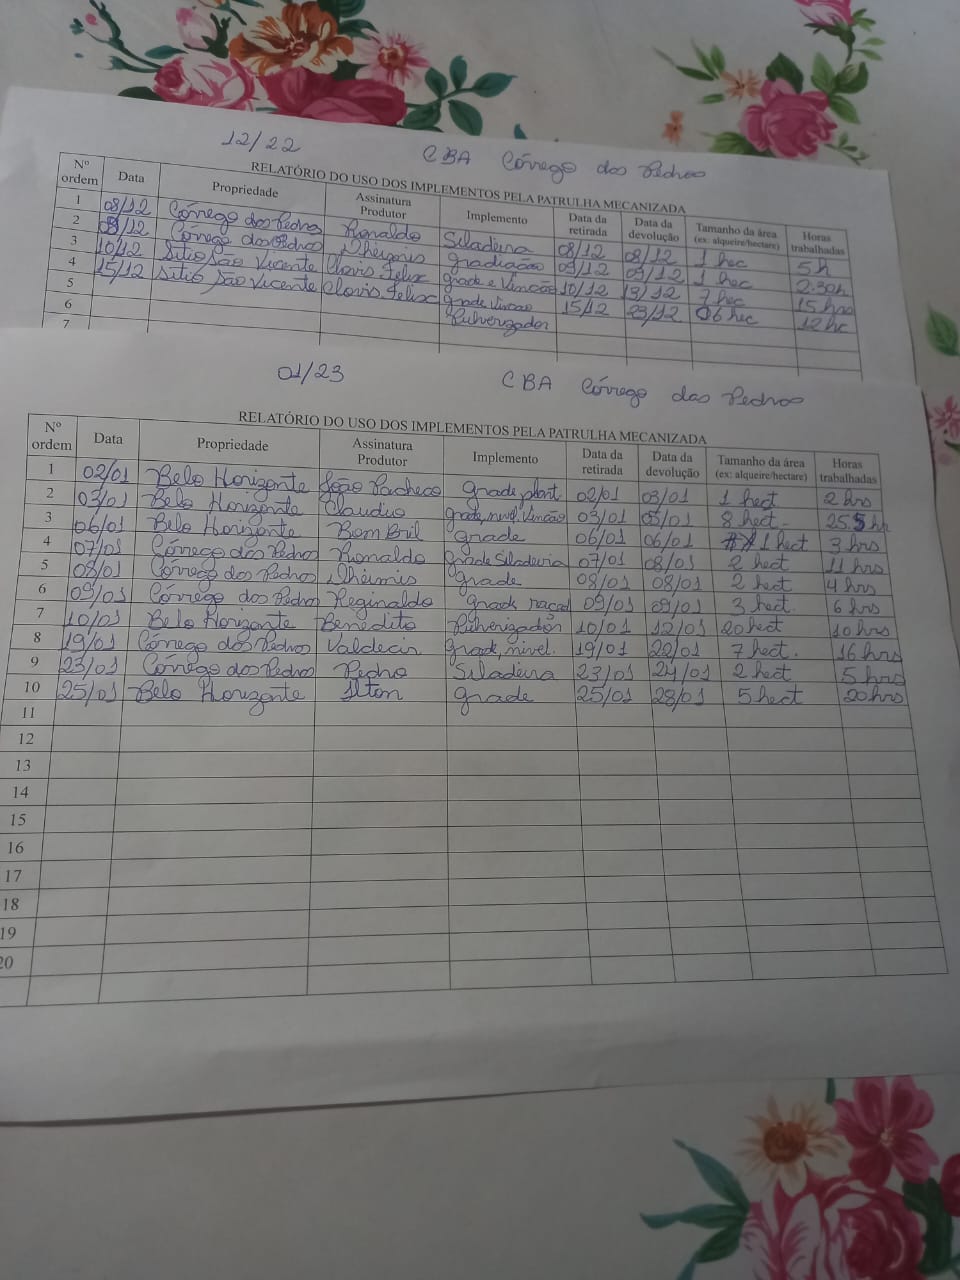 12/22 CBA Córrego dos Pedros
RELATÓRIO DO USO DOS IMPLEMENTOS PELA PATRULHA MECANIZADA
Nº ordem Data Propriedade Assinatura Produtor Implemento Data da retirada Data da devolução Tamanho da área (ex: alqueire/hectare) Horas trabalhadas
1 08/12 Córrego dos Pedros Ronaldo Siladeira 08/12 08/12 1 hec 5h
2 09/12 Córrego dos Pedros Dhêimis gradiação 09/12 09/12 1 hec 2:30h
3 10/12 Sitio São Vicente Clovis Felix grade e Vincão 10/12 19/12 7 hec 15 hrs
4 15/12 Sitio São Vicente Clovis Felix grade Vincao 15/12 23/12 06 hec 12 hc
5 Pulverizador
6
7
01/23 CBA Córrego das Pedros
RELATÓRIO DO USO DOS IMPLEMENTOS PELA PATRULHA MECANIZADA
Nº ordem Data Propriedade Assinatura Produtor Implemento Data da retirada Data da devolução Tamanho da área (ex: alqueire/hectare) Horas trabalhadas
1 02/01 Belo Horizonte João Pacheco grade, plant. 02/01 03/01 1 hect 2 hrs
2 03/01 Belo Horizonte Claudio grade, nivel. Vincão 03/01 05/01 8 hect. 25 hr
3 06/01 Belo Horizonte Bom Bril grade 06/01 06/01 1 hect 3 hrs
4 07/01 Córrego dos Pedros Ronaldo grade Siladeira 07/01 08/01 2 hect 11 hrs
5 08/01 Córrego dos Pedros Dhêimis grade 08/01 08/01 2 hect 4 hrs
6 09/01 Córrego dos Pedros Reginaldo grade, roçad 09/01 09/01 3 hect. 6 hrs
7 10/01 Belo Horizonte Benedito Pulverizador 10/01 12/01 20 hect 10 hrs
8 19/01 Córrego dos Pedros Valdecir grade, nivel. 19/01 22/01 7 hect. 16 hrs
9 23/01 Córrego dos Pedros Pedro Siladeira 23/01 24/01 2 hect 5 hrs
10 25/01 Belo Horizonte Ilton grade 25/01 28/01 5 hect 20 hrs
11
12
13
14
15
16
17
18
19
20